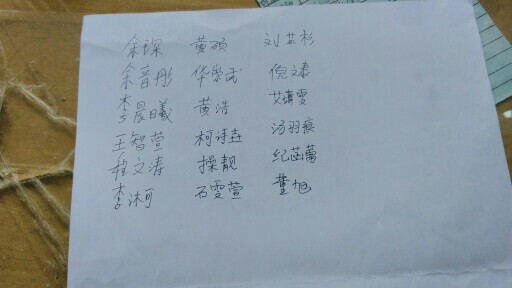 余琛 黄硕 刘芷杉
余音彤 华崇武 倪文泰
李晨曦 黄浩 艾靖雯
王智萱 柯诗垚 汤羽痕
程文涛 操靓 纪茁蕾
李沐可 石雯萱 董旭